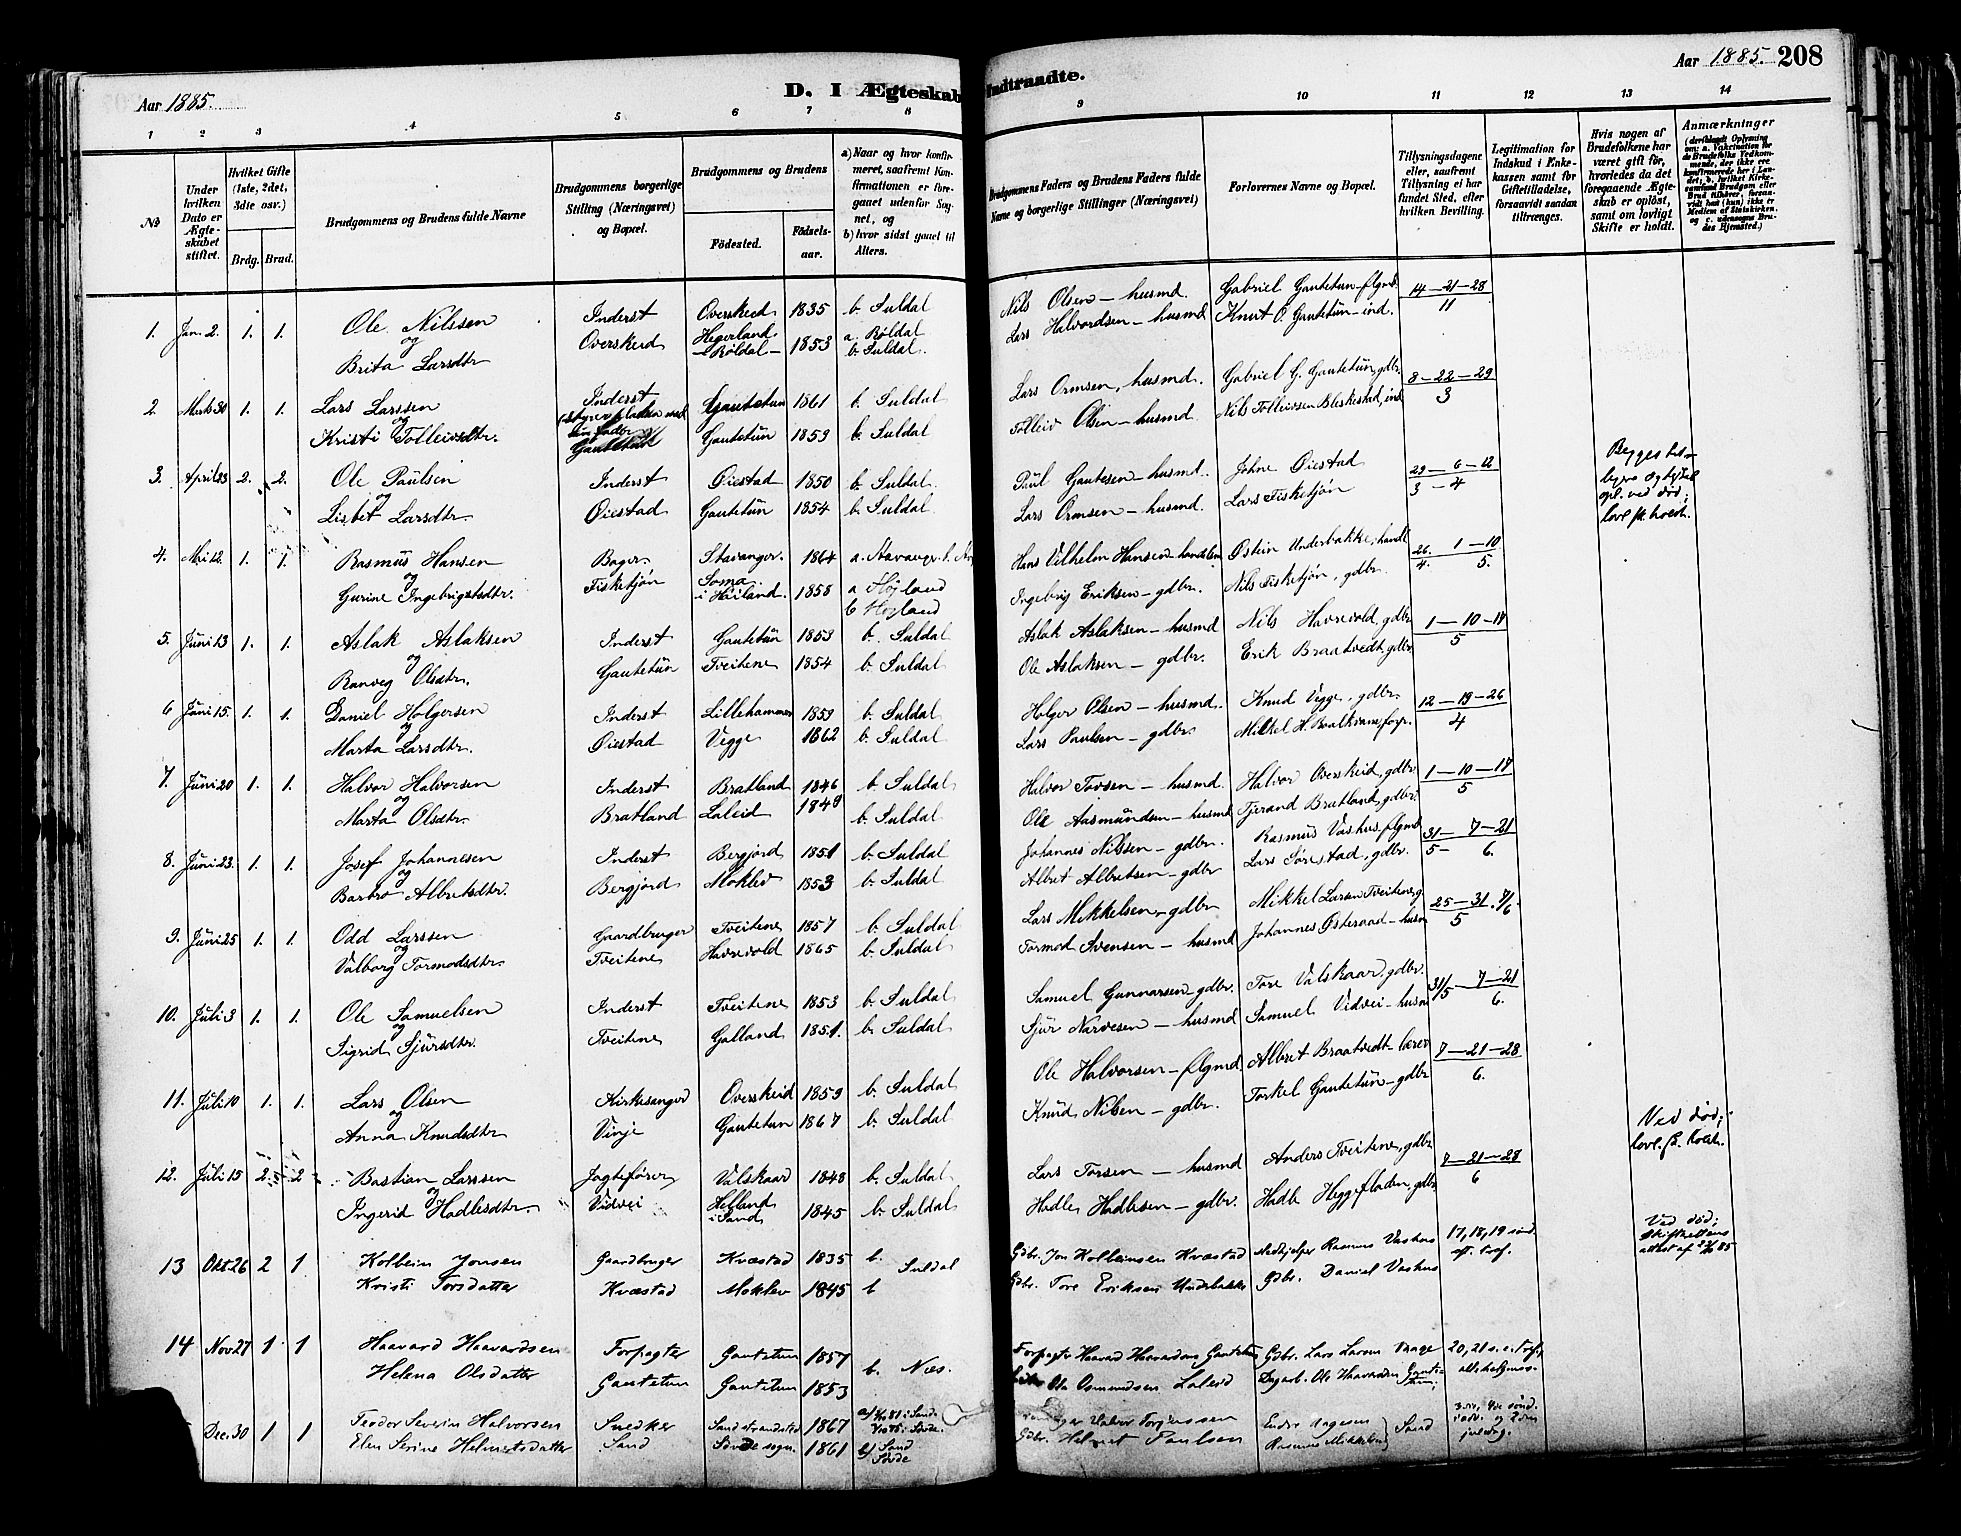 Aar 1885.
D. I Ægteskab Indtraadte.
Aar 1885. 208
1 2 3 4 5 6 7 8 9 10 11 12 13 14
№
Under hvilken Dato er Ægteskabet stiftet.
Hvilket Gifte (1ste, 2det, 3die osv.)
Brdg. Brud.
Brudgommens og Brudens fulde Navne
Brudgommens borgerlige Stilling (Næringsvei) og Bopæl.
Brudgommens og Brudens
Fødested.
Fødselsaar.
a) Naar og hvor konfirmeret, saafremt Konfirmationen er foregaaet udenfor Sognet, og
b) hvor sidst gaaet til Alters.
Brudgommens Faders og Brudens Faders fulde Navne og borgerlige Stillinger (Næringsvei)
Forlovernes Navne og Bopæl.
Tillysningsdagene eller, saafremt Tillysning ei har fundet Sted, efter hvilken Bevilling.
Legitimation for Indskud i Enkekassen samt for Giftetilladelse, forsaavidt saadan tiltrænges.
Hvis nogen af Brudefolkene har været gift før, hvorledes da det foregaaende Ægteskab er opløst, samt om lovligt Skifte er holdt.
Anmærkninger
1. Jan. 2. 1. 1. Ole Nilssen Inderst Overskeid 1835 b. Suldal Nils Olsen – husmd. Gabriel Gautetun – flgmd. 14–21–28
og Brita Larsdtr Overskeid Hegerland Røldal – 1853 a. Røldal b. Suldal. Lars Halvordsen – husmd Knut O. Gautetun – ind. 11
2. Marts 30 1. 1. Lars Larssen Inderst Gautetun 1861 b. Suldal Lars Ormsen, husmd. Gabriel G. Gautetun, gdbr. 8–22–29
og Kristi Tolleivsdtr. Gautetun Gautetun 1859 b. Suldal Tolleiv Olsen – husmd Nils Tolleivsen Bleskestad, ind 3
3. April 23 2. 2. Ole Paulsen Inderst Øiestad 1850 b. Suldal. Paul Gautesen – husmd. Johne Øiestad 29–6–12
og Lisbet Larsdtr. Øiestad Gautetun 1854 b. Suldal Lars Ormsen – husmd. Lars Fisketjøn 3–4
opl. ved død;
4. Mai 12. 1. 1. Rasmus Hansen Bager Stavanger. 1864 a. Stavanger Hans Vilhelm Hansen – Østein Underbakke, 26. 1–10
og Gurine Ingebrigtsdtr. Fisketjøn Soma i Høiland. 1858 a Højland Ingebrig Eriksen – gdbr. Nils Fisketjøn, gdbr. 4. 5.
b Højland
5. Juni 13 1. 1. Aslak Aslaksen Inderst Gautetun 1859 b. Suldal Aslak Aslaksen – husmd Nils Havrevold, gdbr 1–10–14
og Ranveg Olsdtr. Gautetun Tveitene 1854 b. Suldal Ole Aslaksen – gdbr. Erik Braatvedt, gdbr 5
6 Juni 15. 1. 1. Daniel Holgersen Inderst Lillehammer 1859 b. Suldal Holger Olsen – husmd. Knud Vegge, gdbr. 12–19–26
og Marta Larsdtr. Øiestad Vegge 1862 b. Suldal Lars Paulsen – gdbr. 4
7. Juni 20 1. 1. Halvor Halvorsen Inderst Bratland 1846 b. Suldal Halvor Torsen – husmd. Halvor Overskeid, gdbr 1–10–14
og Marta Olsdtr. Bratland Laleid 1849 b. Suldal Ole Aasmundsen – husmd Tjerand Bratland, gdbr. 5
8. Juni 23. 1. 1. Josef Johannesen Inderst Bergjord 1851 b. Suldal Johannes Nilssen – gdbr. Rasmus Vashus, flgmd 31–7–21
og Barbro Albretsdtr. Bergjord Moklev 1853 b. Suldal Albret Albretsen – gdbr Lars Sørestad, gdbr. 5– 6.
9. Juni 25 1. 1. Odd Larssen Gaardbruger Tveitene 1857 b. Suldal Lars Mikkelsen – gdbr Mikkel Larsen Tveitene, g. 25–31. 7/6.
og Valborg Tormodsdtr. Tveitene Havrevold 1865 b. Suldal Tormod Svensen – husmd Johannes Østeraad – husm 5
10. Juli 3 1. 1. Ole Samuelsen Inderst Tveitene 1853 b. Suldal Samuel Gunnarsen – gdbr. Tore Valskaar, gdbr. 31/5 – 7–21
og Sigrid Sjursdtr. Tveitene Galland 1851. b. Suldal Sjur Narvesen – husmd Samuel Vidvei – husm 6.
11. Juli 10 1. 1. Lars Olsen Kirkesanger Overskeid 1859 b. Suldal Ole Halvorsen – flgmd. Albret Braatvedt – lærer 7–21–28
og Anna Knudsdtr Vinje Gautetun 1867 b. Suldal Knud Nilsen – gdbr. Torkel Gautetun – gdbr 6.
12. Juli 15 2. 2 Bastian Larssen Jagtefører Valskaar 1848 b. Suldal Lars Torsen – husmd Anders Tveitene, gdbr 7–21–28 Ved død;
og Ingerid Hadlesdtr. Vidvei Helland i Sand 1845 b. Suldal Hadle Hadlesen – gdbr. Hadle Heggefladen, gdbr 6
13 Okt 26 2 1 Kolbein Jonsen Gaardbruger Kvæstad 1835 b. Suldal Gdbr. Jon Kolbeinsen Kvæstad Medhjelper Rasmus Vashus 17, 18, 19 sønd. Ved død;
Kristi Torsdatter Kvæstad Moklev 1845 b Gdbr. Tore Eriksen Underbakke Gdbr. Daniel Vashus eft. tref. Skifterettens attest af
14 Nov 27 1 1 Haavard Haavardsen Forpagter Gautetun 1857 b. Næs. Forpagter Haavard Haavardsen Gautetun Gdbr. Lars Larsen 20, 21 s. e. tref.
Helena Olsdatter Gautetun Gautetun 1853 Ole Osmundsen Laleid Ole Haavardsen
Dec. 30 1 1 Teodor Severin Halvorsen Snedker Sandstrandsted 1867 Halvor Torgersen Endre Aagesen Sand
Elen Serine Helmetsdatter Sand Søvde sogn. 1861 b) Sand Søvde Gdbr. Helmet Paulsen Rasmus Mikkelsen